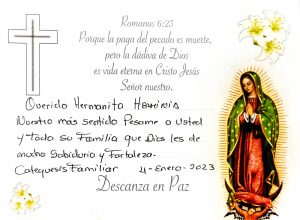 Romanos 6:23
Porque la paga del pecado es muerte,
pero la dádiva de Dios
es vida eterna en Cristo Jesús
Señor nuestro.
Querida Hermanita
Nuestro más sentido Pesame a Usted
y Todo su Familia que Dios les de
mucha Sabiduria y Fortaleza.
Catequesis Familiar 4-Enero-2023
Descanza en Paz